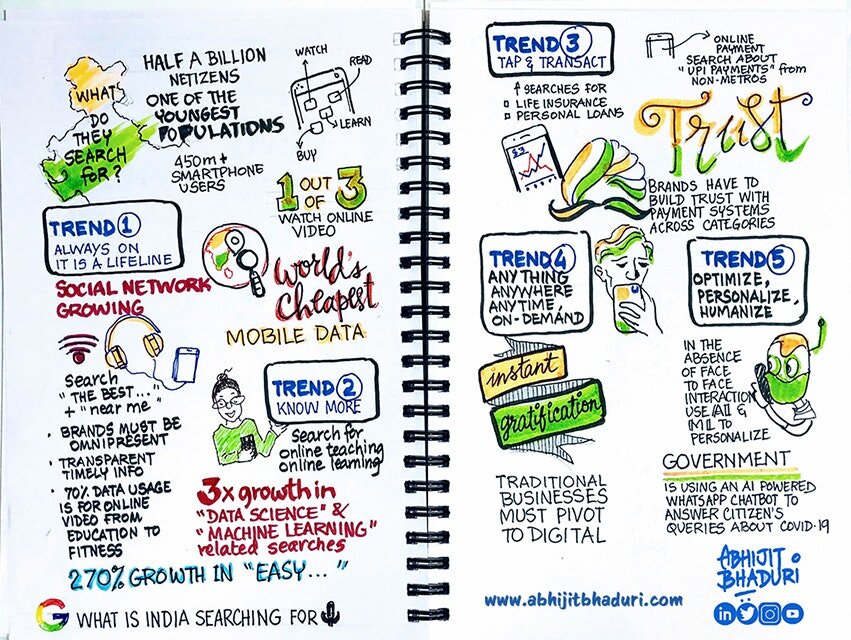 WHATS
DO
THEY
SEARCH
FOR?
HALF A BILLION
NETIZENS
ONE OF THE
YOUNGEST
POPULATIONS
450m+
SMARTPHONE
USERS
WATCH
READ
LEARN
BUY
1 OUT OF 3
WATCH ONLINE
VIDEO
TREND 1
ALWAYS ON
IT IS A LIFELINE
SOCIAL NETWORK
GROWING
World's
Cheapest
MOBILE DATA
Search
"THE BEST..."
+ "near me"
• BRANDS MUST BE
OMNIPRESENT
• TRANSPARENT
TIMELY INFO
• 70% DATA USAGE
IS FOR ONLINE
VIDEO FROM
EDUCATION TO
FITNESS
TREND 2
KNOW MORE
Search for
online teaching
online learning
3x growth in
"DATA SCIENCE" &
"MACHINE LEARNING"
related searches
270% GROWTH IN "EASY..."
G WHAT IS INDIA SEARCHING FOR
TREND 3
TAP & TRANSACT
↑ SEARCHES FOR
LIFE INSURANCE
PERSONAL LOANS
ONLINE
PAYMENT
SEARCH ABOUT
"UPI PAYMENTS" from
NON-METROS
Trust
BRANDS HAVE TO
BUILD TRUST WITH
PAYMENT SYSTEMS
ACROSS CATEGORIES
TREND 4
ANYTHING
ANYWHERE
ANYTIME,
ON-DEMAND
instant
gratification
TRADITIONAL
BUSINESSES
MUST PIVOT
TO DIGITAL
TREND 5
OPTIMIZE,
PERSONALIZE,
HUMANIZE
IN THE
ABSENCE
OF FACE
TO FACE
INTERACTION
USE AI &
ML TO
PERSONALIZE
GOVERNMENT
IS USING AN AI POWERED
WHATSAPP CHATBOT TO
ANSWER CITIZEN'S
QUERIES ABOUT COVID-19
ABHIJIT
BHADURI
www.abhijitbhaduri.com